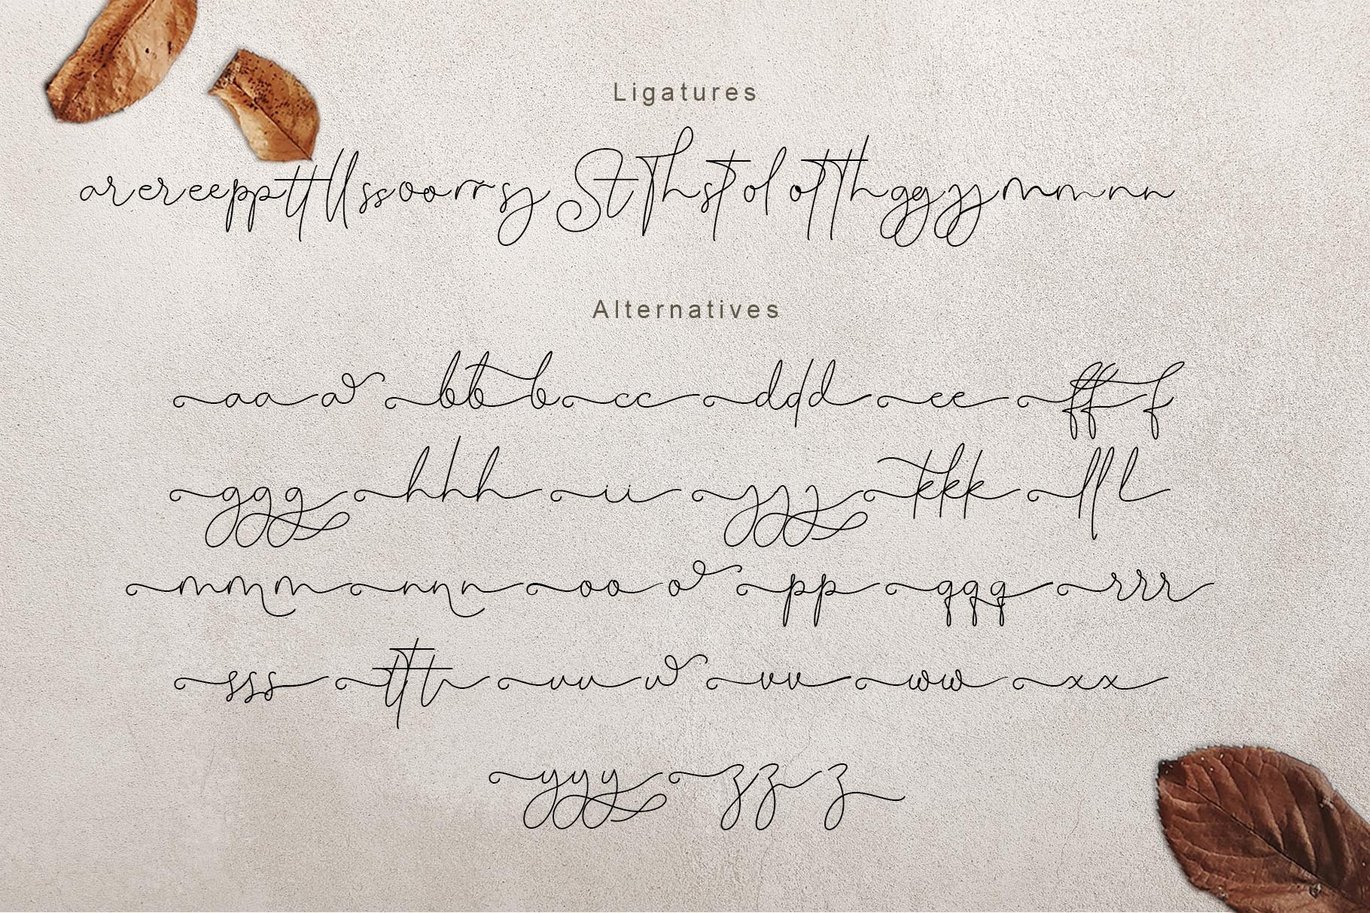 Ligatures
arereeppttllssoorrsyStThstolotthggyymmnn
Alternatives
aaa bbb cc ddd ee fff
ggg hhh ii jjj kkk lll
mmm nnn ooo pp qqq rrr
sss ttt uuu vv ww xx
yyy zzz